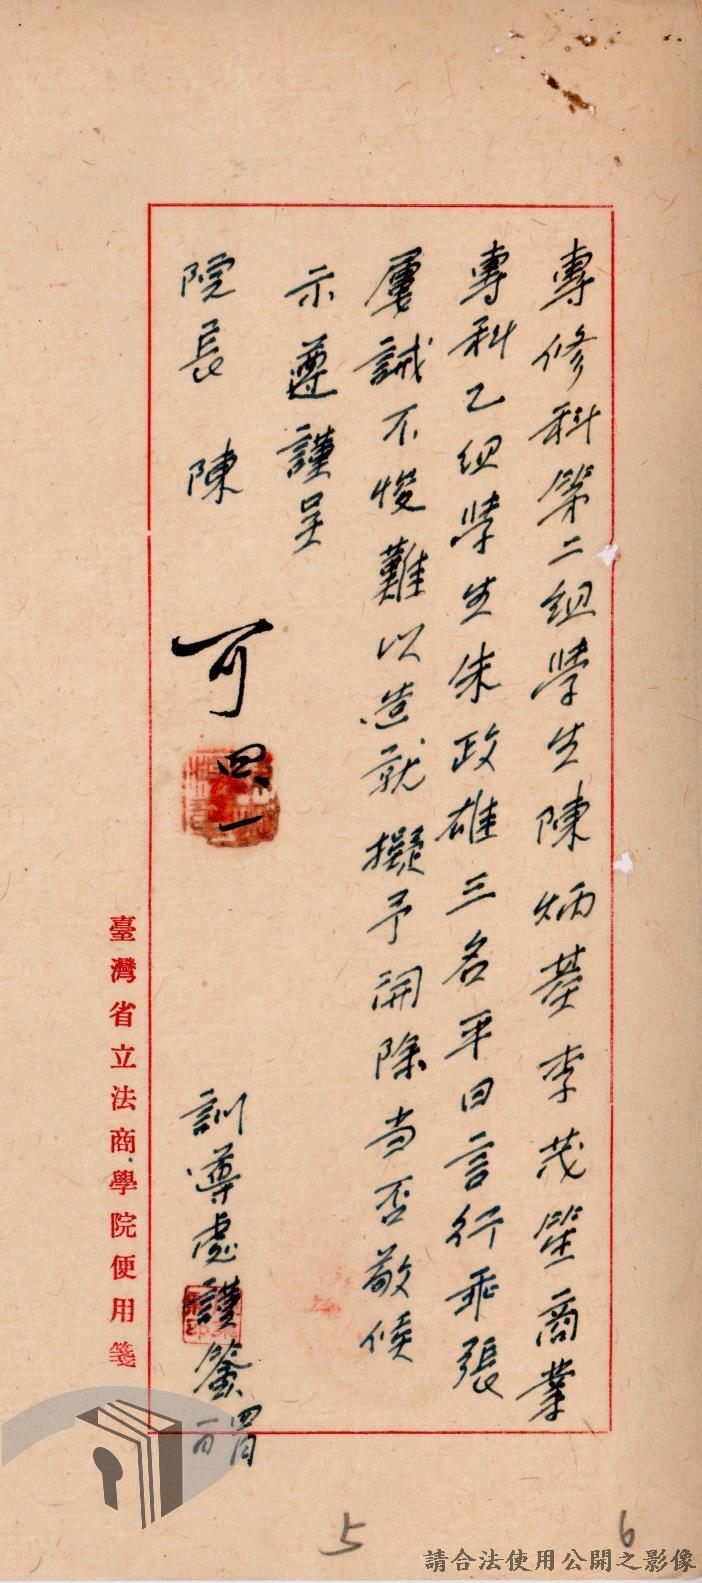 專修科第二組學生陳炳基李茂筆商業
專科乙組學生朱政雄三名平日言行乖張
屢誡不悛難以造就擬予開除當否敬候
示遵謹呈
院長 陳
可
四、一
訓導處謹簽
四月一日
臺灣省立法商學院便用箋
5
6
請合法使用公開之影像